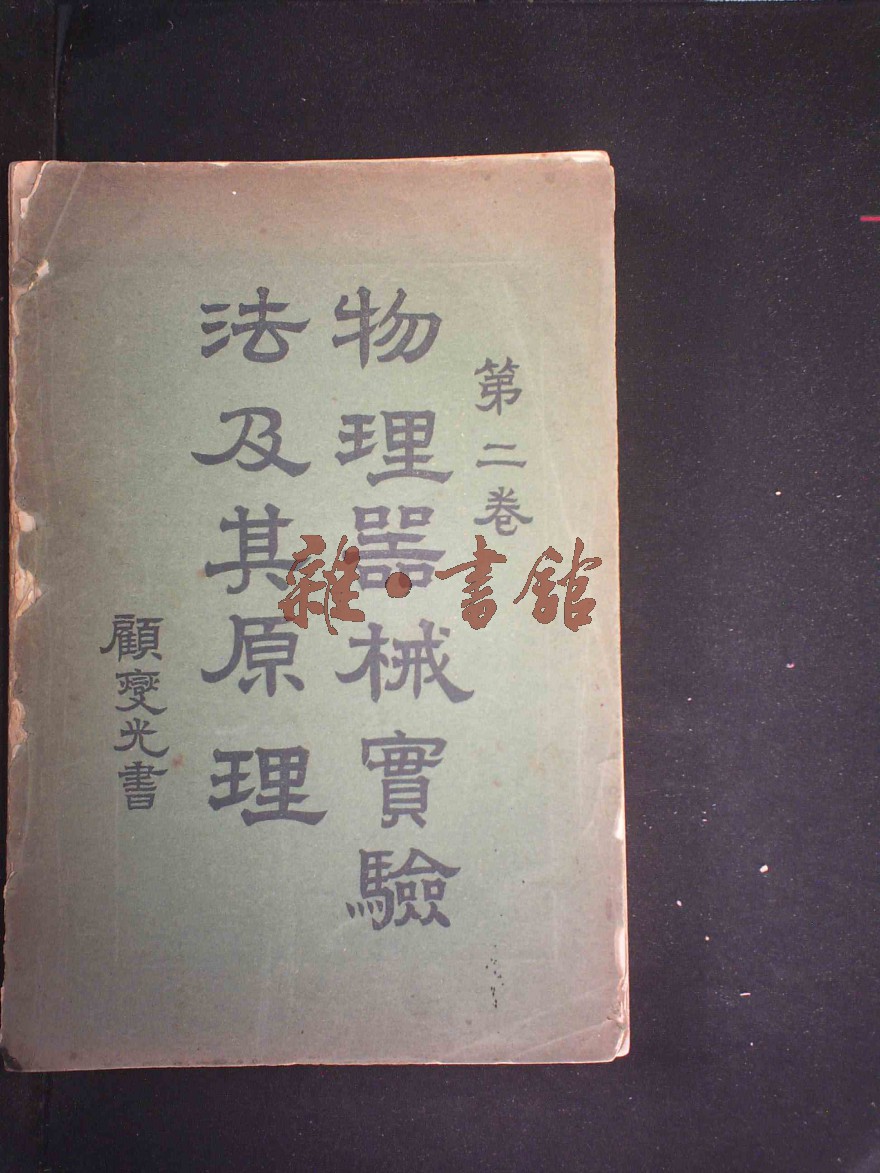 第二卷
物理器械實驗
法及其原理
顧燮光書
雜·書館